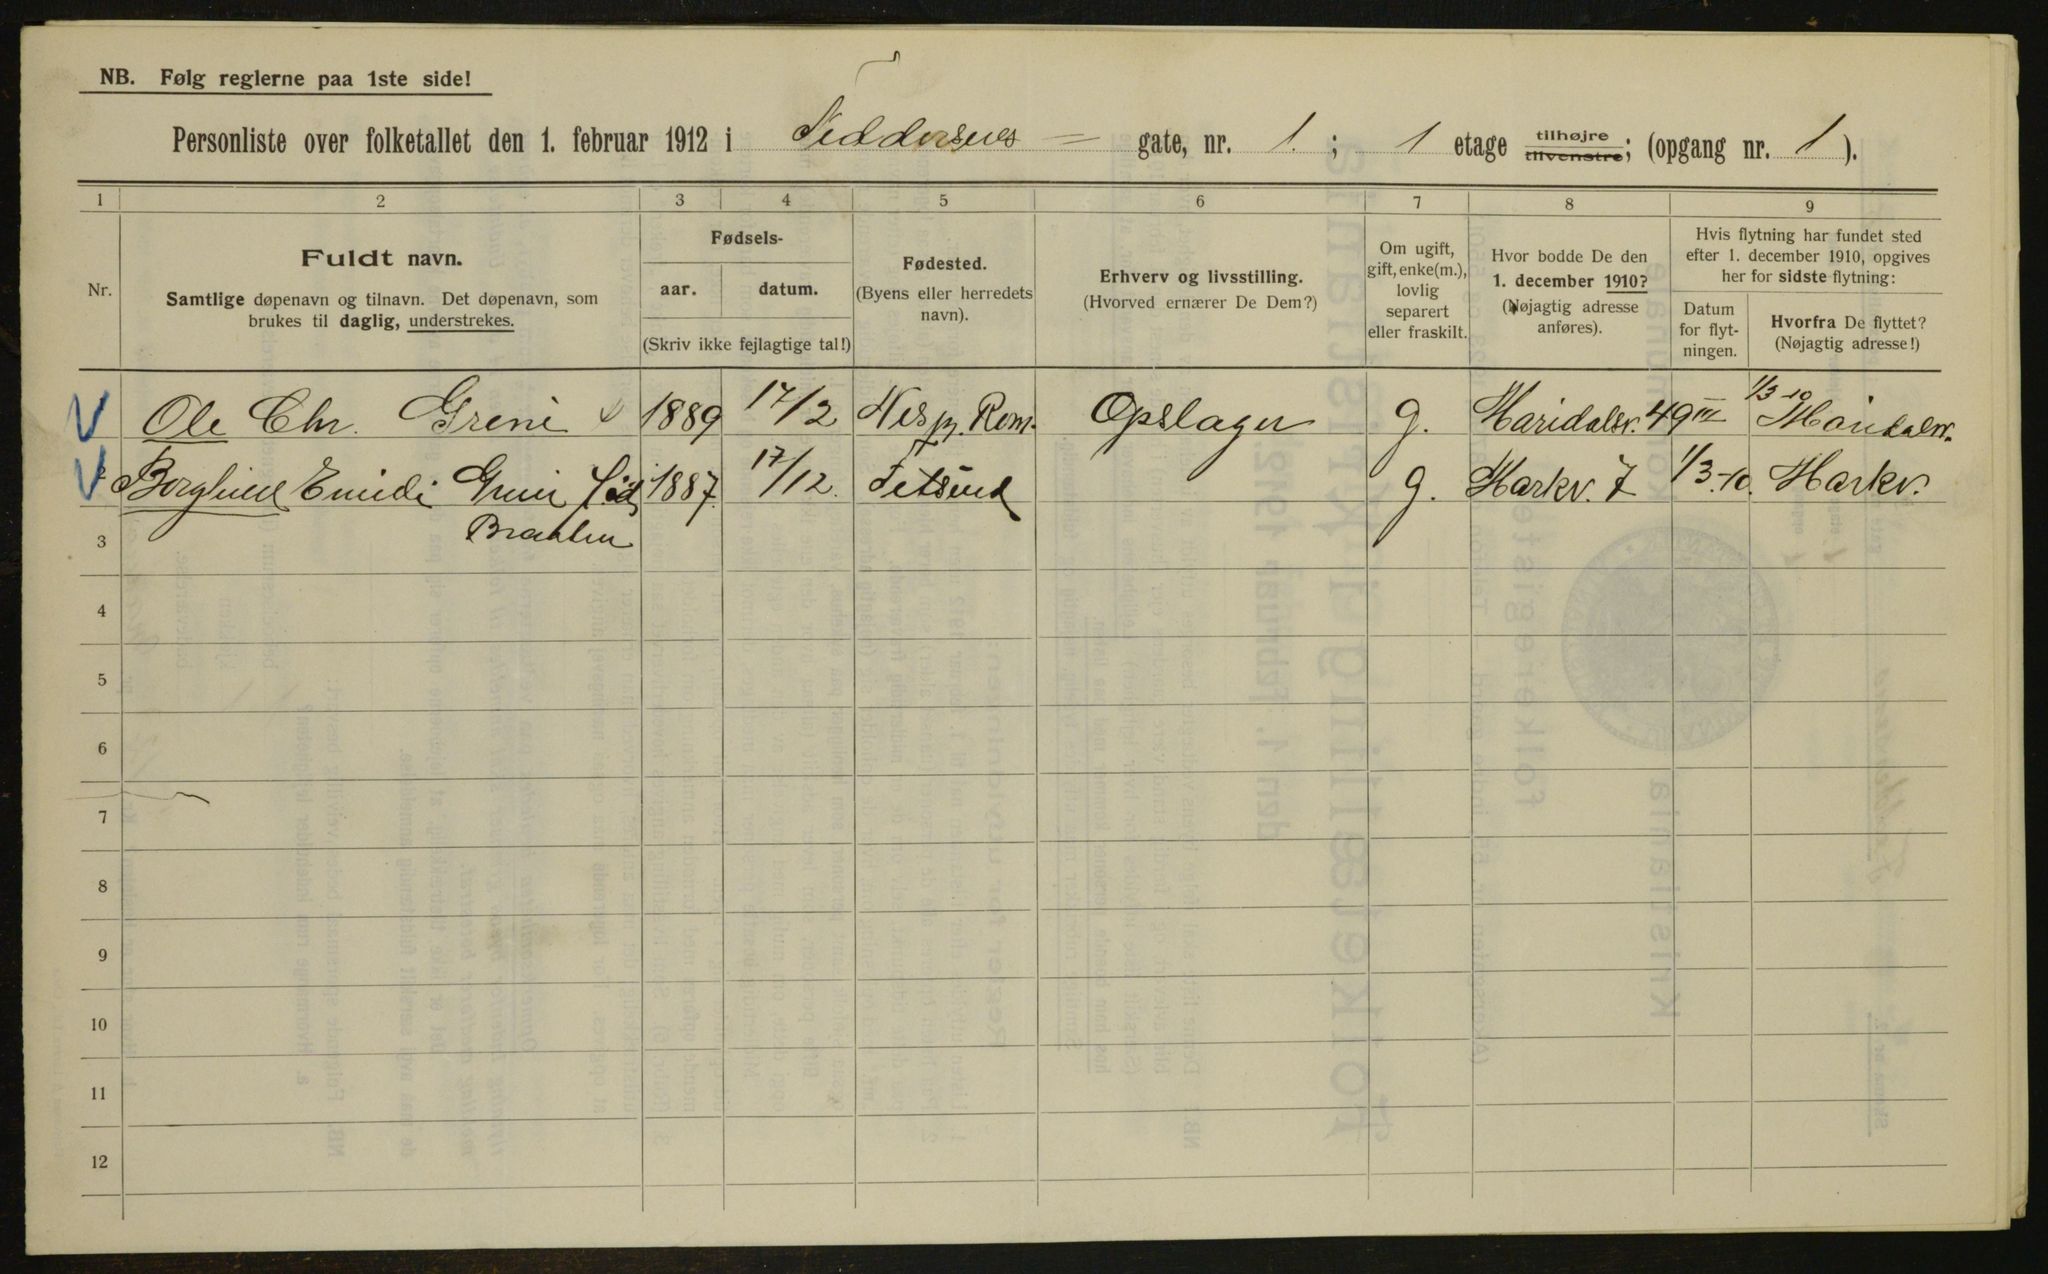 NB. Følg reglerne paa 1ste side!
Personliste over folketallet den 1. februar 1912 i Feddersens gate, nr. 1. ; 1 etage tilhøjre tilvenstre; (opgang nr. 1).
1 2 3 4 5 6 7 8 9
Nr.
Fuldt navn.
Samtlige døpenavn og tilnavn. Det døpenavn, som
brukes til daglig, understrekes.
Fødsels-
aar. datum.
(Skriv ikke fejlagtige tal!)
Fødested.
(Byens eller herredets
navn).
Erhverv og livsstilling.
(Hvorved ernærer De Dem?)
Om ugift,
gift, enke(m.),
lovlig
separert
eller fraskilt.
Hvor bodde De den
1. december 1910?
(Nøjagtig adresse
anføres).
Hvis flytning har fundet sted
efter 1. december 1910, opgives
her for sidste flytning:
Datum
for flyt-
ningen.
Hvorfra De flyttet?
(Nøjagtig adresse!)
Ole Chr. Greni 1889 17/2 Nesp. Rom. Opslager g. Maridalsv. 49 III 1/3-10 Maridalsv.
Borghild Emidi Greni fød 1887. 17/12. Fetsund g. Markv. 7 1/3.-10. Markv.
3 Braaten
4
5
6
7
8
9
10
11
12